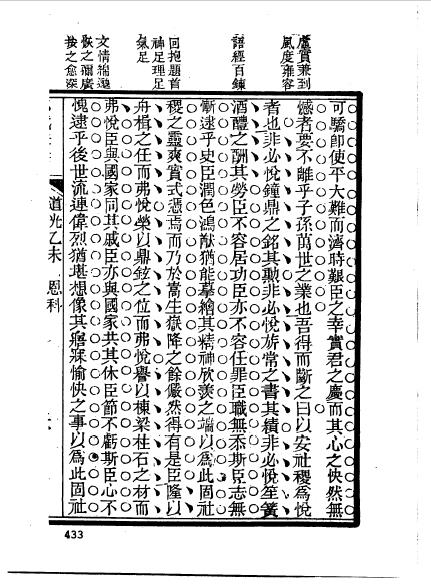 虛實兼到
風度雍容
語經百鍊
回抱題首
神足理足
氣足
文情綿邈
恢之彌廣
按之愈深
可驕卽使平大難而濟時艱臣之幸實君之慶而其心之怏然無
憾者要不離乎子孫萬世之業也吾得而斷之曰以安社稷爲悅
者也非必悅鐘鼎之銘其勳非必悅旂常之書其績非必悅笙簧
酒醴之酬其勞臣不容居功臣亦不容任罪臣職無忝斯臣志無
慚逮乎史臣潤色鴻猷猶能摹繪其精神欣羨之端以爲此固社
稷之靈爽實式憑焉而乃於嵩生嶽降之餘儼然得有是臣隆以
舟楫之任而弗悅榮以鼎鉉之位而弗悅譽以棟梁柱石之材而
弗悅臣與國家同其戚臣亦與國家共其休臣節不虧斯臣心不
愧逮乎後世流連偉烈猶堪想像其寤寐愉快之事以爲此固社
道光乙未 恩科
433